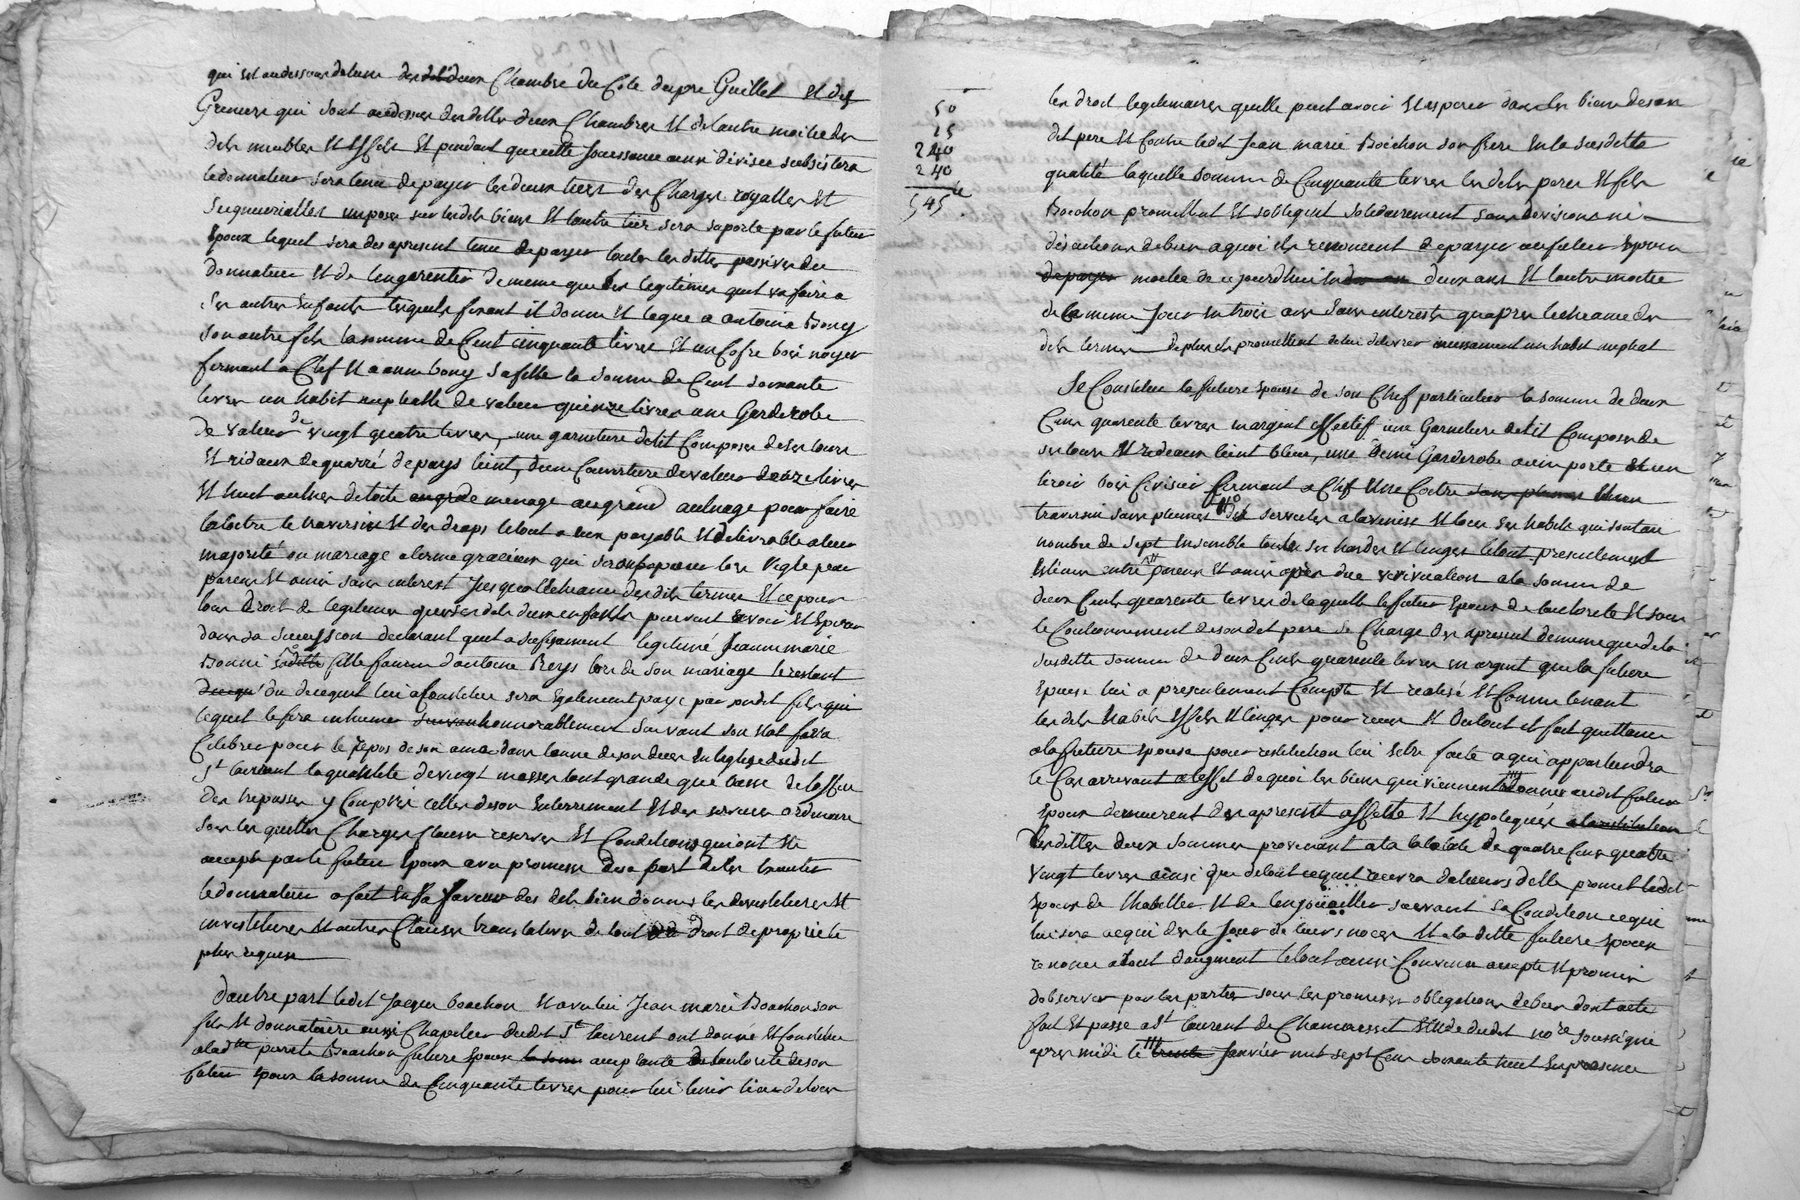 qui est au dessous de lune des deux Chambre du Cote dupre Guillet Et des
Greniers qui sont au dessus des dittes deux Chambres Et de lautre moitie des
dits meubles Et Effets Et pendant que cette Jouissance ainsi divisee subsistera
le donnateur sera tenu de payer les deux tiers des Charges royalles Et
Seigneurialles imposes sur les dits biens Et lautre tier sera suporte par le futur
Epoux lequel sera des apresent tenu de payer toutes les dittes passives du
donnateur Et de len garentir de meme que des legitimes quil va faire a
ses autres Enfants lesquels faisant il donne Et legue a antoine Bony
son autre fils la somme de Cent cinquante livres Et un Cofre bois noyer
fermant a Clef Et a anne bony sa fille la somme de Cent soixante
livres un habit nuptialle de valeur quinze livres une Garderobe
de valeur de vingt quatre livres, une garniture de lit Composee de ses tours
Et rideaux de quarré de pays teint, dune Couverture de valeur douze livres
Et huit aulnes de toile de menage au grand aulnage pour faire
la loitre le traversin Et des draps le tout a eux payable Et delivrable a leur
majorité ou mariage a terme gracieux qui seront par leur
parens Et amis sans interest Jusqua lecheance desdits termes Et ce pour
tous Droit de legitimes que ses dits deux enfants peuvent avoir Et Esperer
dans sa succession declarant quil a suffisament legitimé Jeanne marie
Bonni sa fille femme dantoine Reys lors de son mariage le restant
du de ce quil lui a Constitue sera Egalement paye par sondit fils qui
lequel le fera inhumer honnorablement Suivant son Etat fera
Celebrer pour le repos de son ame dans lanne de son deces En leglise dudit
St laurent la quantite de vingt messes tant grande que basse de loffice
des trepasses y Compris celles de son Enterrement Et des services ordinaire
sous les quelles Charges Clauses reserves Et Conditions qui ont Ete
accepte par le futur Epoux avec promesse de sa part de les Executer
le donnateur a fait En sa faveur des dits biens donnes les devestitures Et
investitures Et autres Clauses translatives de tout droit de propriete
plus requise
Dautre part ledit Jacque boachon Et avec lui Jean marie Boachon son
fils Et donnataire aussi Chapelier dudit St laurent ont donné Et Constitue
a lad.tte Boachon future Epouse acceptante de lautorite de son
futur Epoux la somme de Cinquante livres pour lui tenir lieu de tous
50
15
240
240
545
les droit legitimaires quelle peut avoir Et esperer dans les biens de son
dit pere Et Contre ledit Jean marie Boachon son frere En la susditte
qualité laquelle somme de Cinquante livres les dits pere Et fils
Boachon promettent Et sobligent solidairement sans division ni
discution de bien a quoi ils renoncent de payer au futur Epoux
moitie de ce jourdhui En deux ans Et lautre moitie
de la meme Jour En trois ans sans interests quapres lecheance des
dits termes De plus ils promettent de lui delivrer incessament un habit nuptial
Se Constitue la future Epouse de son Chef particulier la somme de deux
Cens quarente livres En argent Effectif une Garniture de lit Composee de
ses tours Et rideaux teint bleu, une Demi Garderobe a une porte Et un
tiroir bois Cerisier fermant a Clef Une Coitre Et un
traversin sans plumes six serviettes a la venise Et tous ses habits qui sont au
nombre de sept Ensemble toutes ses hardes Et linges le tout presentement
Estimes entre parens Et amis apres due verification a la somme de
deux Cents quarente livres de laquelle le futur Epoux de lautorite Et sous
le Cautionnement de son dit pere Se Charge des apresent de meme que de la
susditte somme de deux Cents quarente livres En argent que la future
Epouse lui a presentement Compte Et realisé Et Comme tenant
les dits habits Effets Et linges pour reçu Et Du tout il fait quittance
a la future Epouse pour restitution lui Estre faite a qui appartiendra
le Cas arrivant a leffet de quoi les biens qui viennent donnes audit futur
Epoux demeurent des apresent affecte Et hypoteques
Les dittes deux sommes provenant a la totale de quatre Cens quatre
vingt livres ainsi que de tout ce quil recevra dalieurs delle promet ledit
Epoux de lhabiller Et de lenjoüailler suivant sa Condition ce qui
lui sera acquit des le Jour de leurs noces Et a la ditte future Epouse
renonce a tout daugment le tout ainsi Convenu accepte Et promis
dobserver par les parties sous les promesses obligations de bien dont acte
fait Et passe a St laurent de Chamousset Etude dudit no.re soussigne
apres midi le Janvier mil sept Cens soixante huit En presence